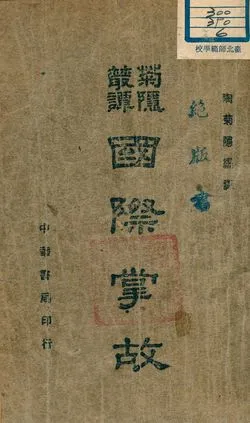 300
390
6
臺北師範學校
陶菊隱編譯
絕版書
菊隱
叢譚
國際掌故
中華書局印行